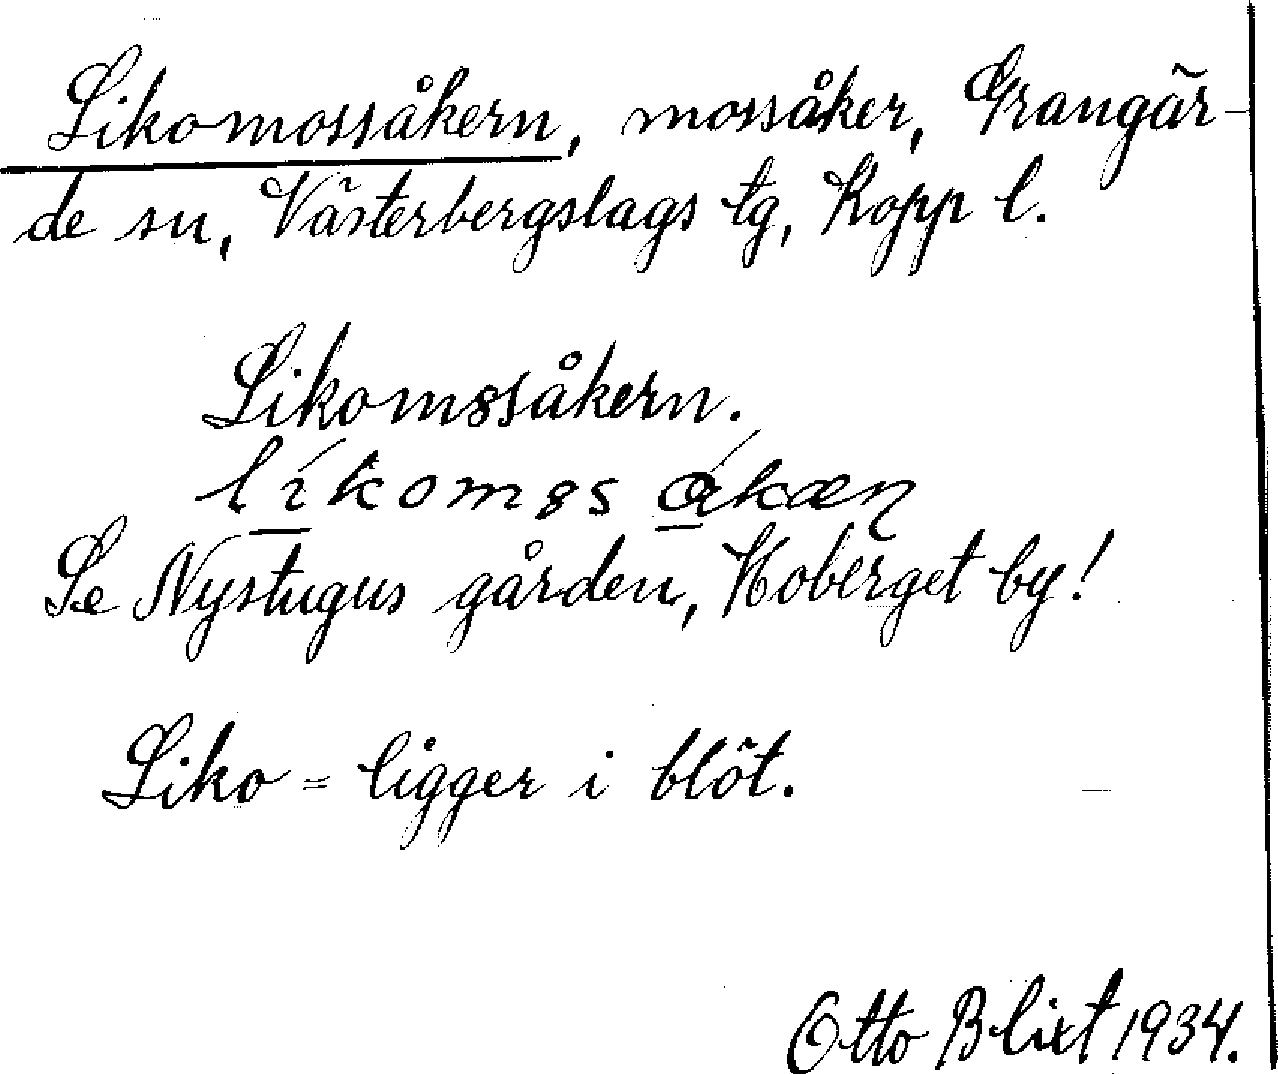 Likomossåkern, mossåker, Grangär-
de sn, Västerbergslags tg, Kopp l.
Likomssåkern.
Se Nystugus gården, Hoberget by!
Liko = ligger i blöt.
Otto Blixt 1934.